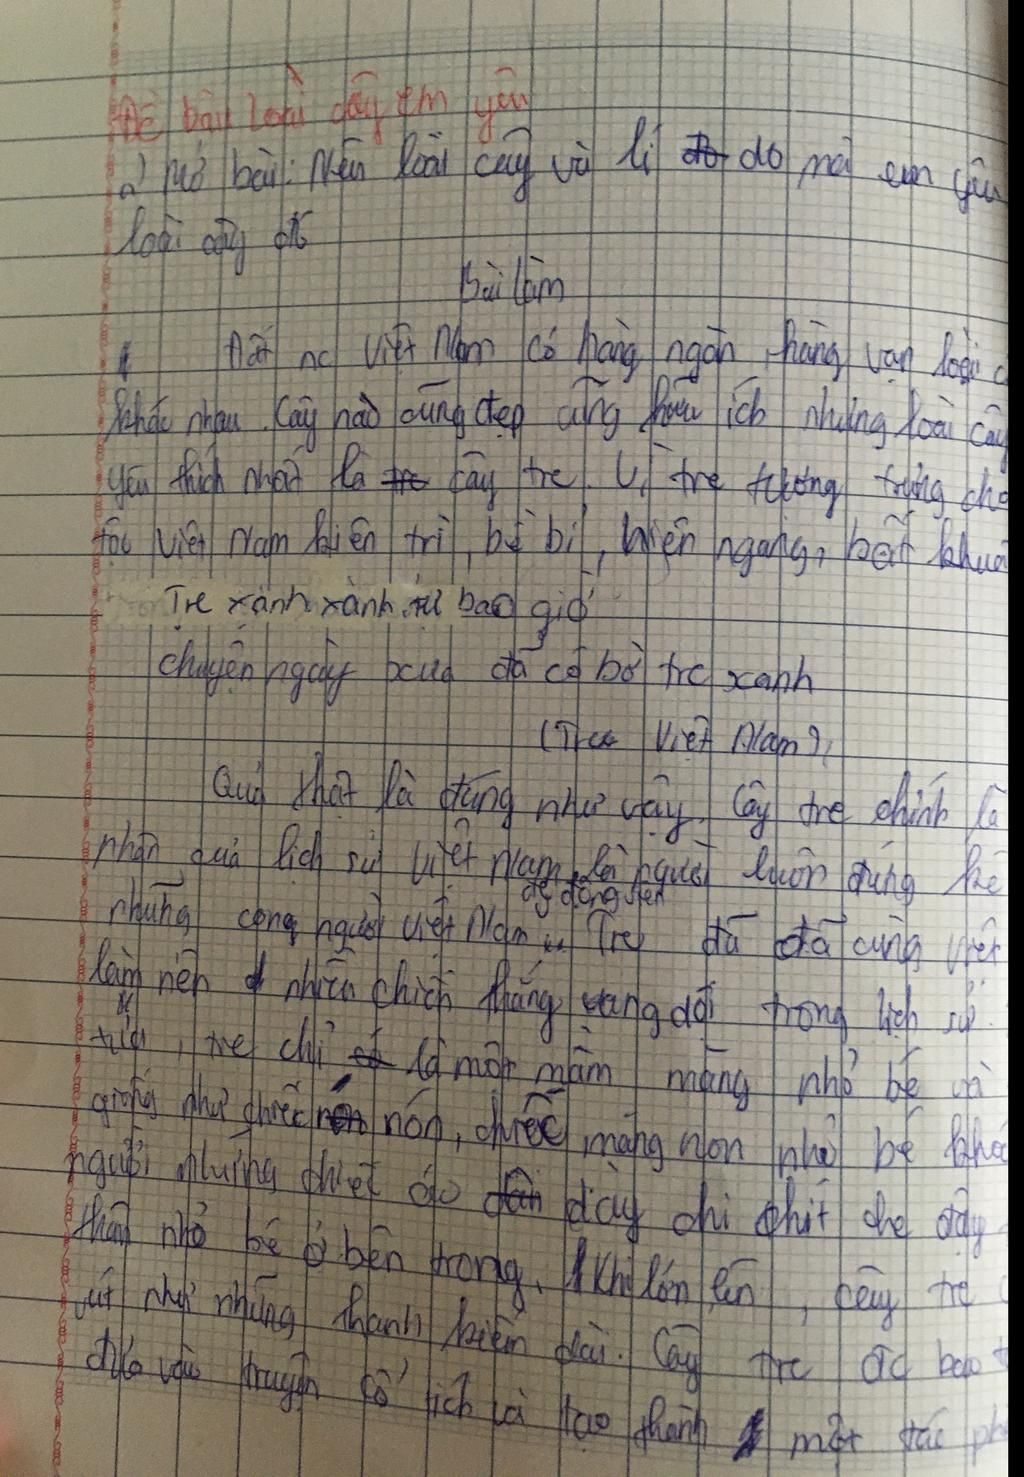 Đề bài: Loài cây em yêu
a) Mở bài: Nêu loài cây và lí do mà em yêu
loài cây đó
Bài làm
Đất nc Việt Nam có hàng ngàn, hàng vạn loài
khác nhau. Cây nào cũng đẹp cũng hữu ích nhưng loài cây
yêu thích nhất là cây tre. Vì tre tượng trưng cho
tộc Việt Nam kiên trì, bền bỉ, hiên ngang, bất khuất
Tre xanh xanh tự bao giờ
chuyện ngày xưa đã có bờ tre xanh
(Tre Việt Nam)
Quả thật là đúng như vậy. Cây tre chính là
nhân quả lịch sử Việt Nam, là người luôn đứng kề
những cong người Việt Nam. Tre đã đã cùng Việt
làm nên nhiều chiến thắng vang dội trong lịch sử.
tre chỉ là một mầm măng nhỏ bé và
giống như chiếc nón, chiếc măng non nhỏ bé
người những chiếc áo dày chi chít che đậy
thân nhỏ bé ở bên trong. Khi lớn lên, cây tre
vút như những thanh kiếm dài. Cây tre
đưa vào truyện cổ tích và tạo thành một tác